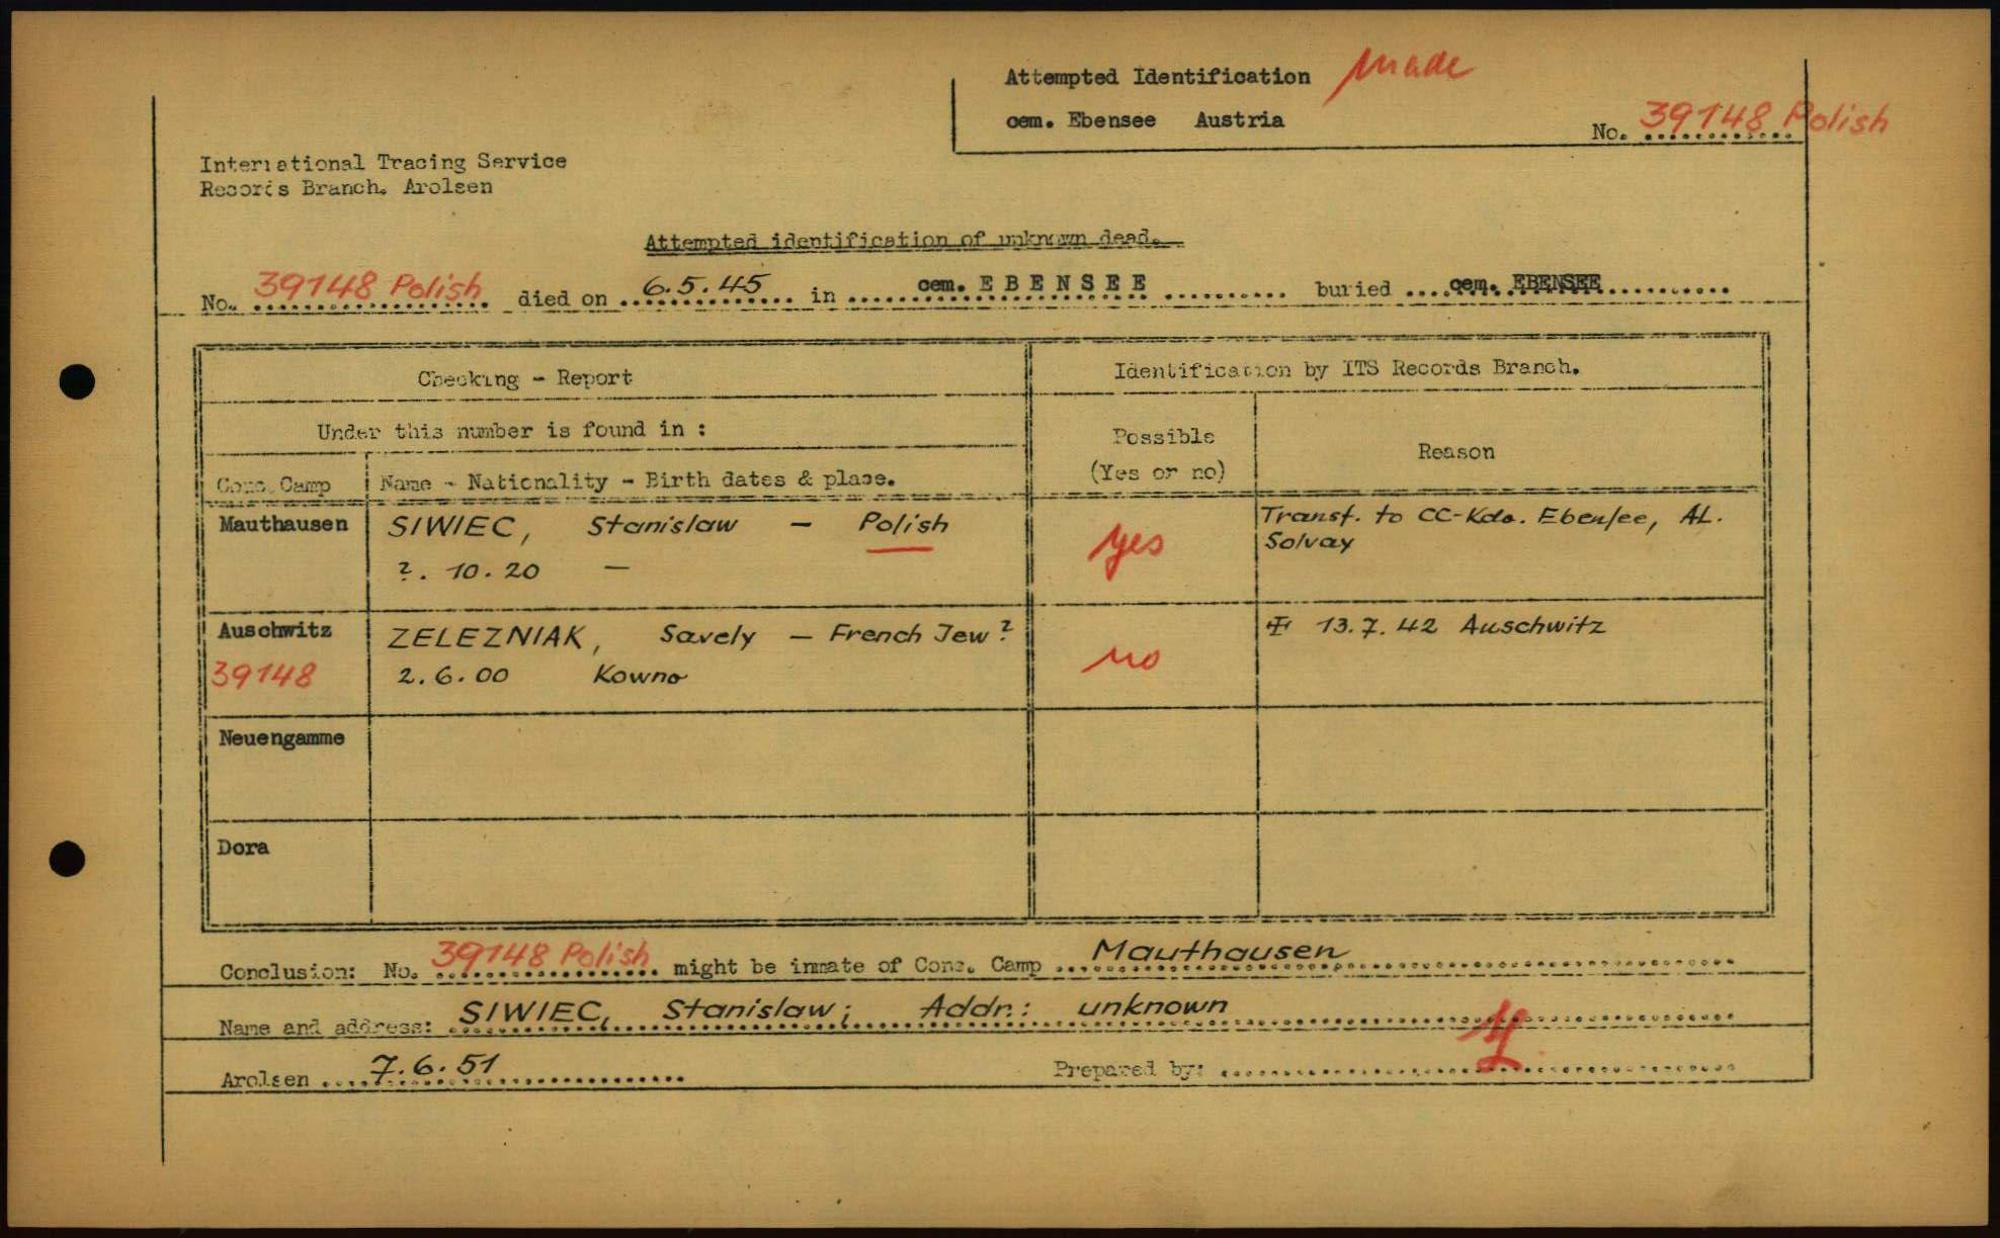 Attempted Identification made
cem. Ebensee Austria
No. 39148 Polish
International Tracing Service
Records Branch. Arolsen
Attempted identification of unknown dead.
No. 39148 Polish died on 6.5.45 in cem. EBENSEE buried cem. EBENSEE
Checking - Report
Identification by ITS Records Branch.
Under this number is found in :
Possible
(Yes or no)
Reason
Conc. Camp
Name - Nationality - Birth dates & place.
Mauthausen
SIWIEC, Stanislaw - Polish
?. 10. 20 -
yes
Transf. to CC-Kdo. Ebensee, AL.
Solvay
Auschwitz
39148
ZELEZNIAK, Savely - French Jew ?
2. 6. 00 Kowno
no
13. 7. 42 Auschwitz
Neuengamme
Dora
Conclusion: No. 39148 Polish might be inmate of Conc. Camp Mauthausen
Name and address: SIWIEC, Stanislaw; Addr.: unknown
Arolsen 7. 6. 51
Prepared by: